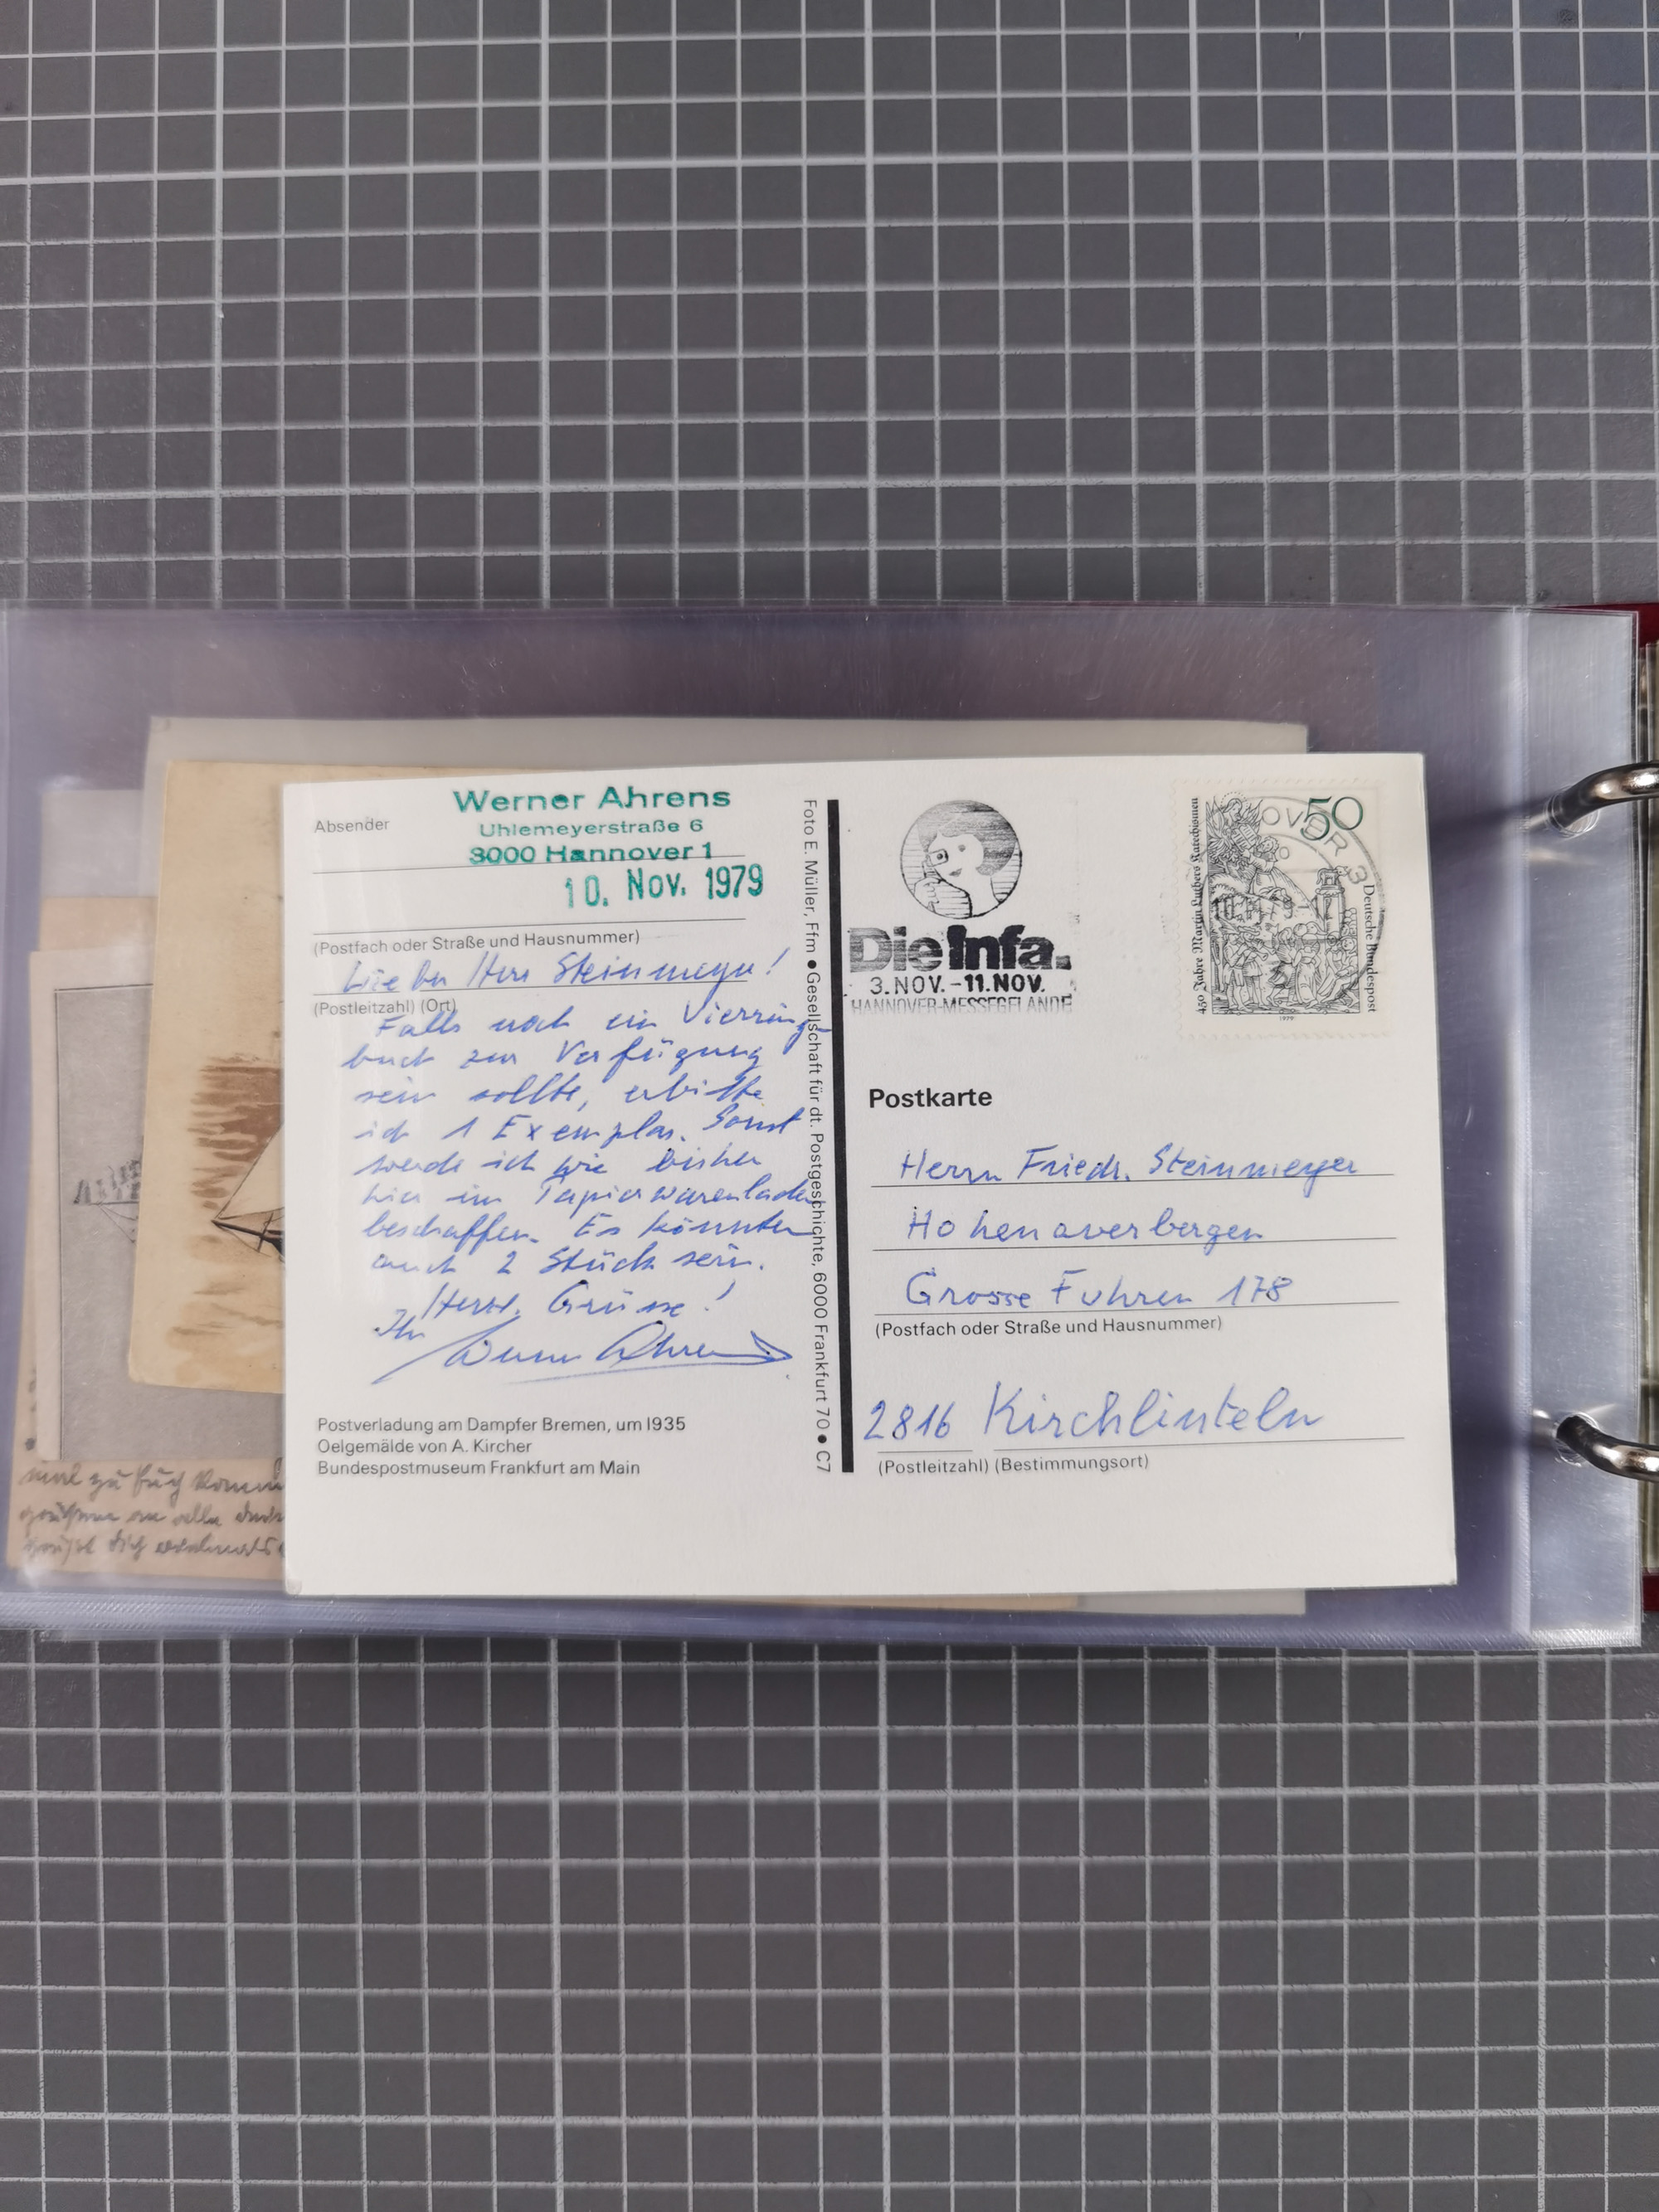 Werner Ahrens
Absender
Uhlemeyerstraße 6
3000 Hannover 1
10. Nov. 1979
(Postfach oder Straße und Hausnummer)
Lieber Herr Steinmeyer!
(Postleitzahl) (Ort)
Falls noch ein Vierring-
buch zur Verfügung
sein sollte, erbitte
ich 1 Exemplar. Sonst
werde ich wie bisher
hier im Papierwarenladen
beschaffen. Es könnten
auch 2 Stück sein.
Herzl. Grüsse!
Ihr
Werner Ahrens
Postverladung am Dampfer Bremen, um 1935
Oelgemälde von A. Kircher
Bundespostmuseum Frankfurt am Main
Foto E. Müller, Ffm ● Gesellschaft für dt. Postgeschichte, 6000 Frankfurt 70 ● C7
Die Infa.
3. NOV. - 11. NOV.
HANNOVER-MESSEGELÄNDE
50
450 Jahre Martin Luthers Katechismen
Deutsche Bundespost
1979
Postkarte
Herrn Friedr. Steinmeyer
Hohenaverbergen
Grosse Fuhren 178
(Postfach oder Straße und Hausnummer)
2816 Kirchlinteln
(Postleitzahl) (Bestimmungsort)